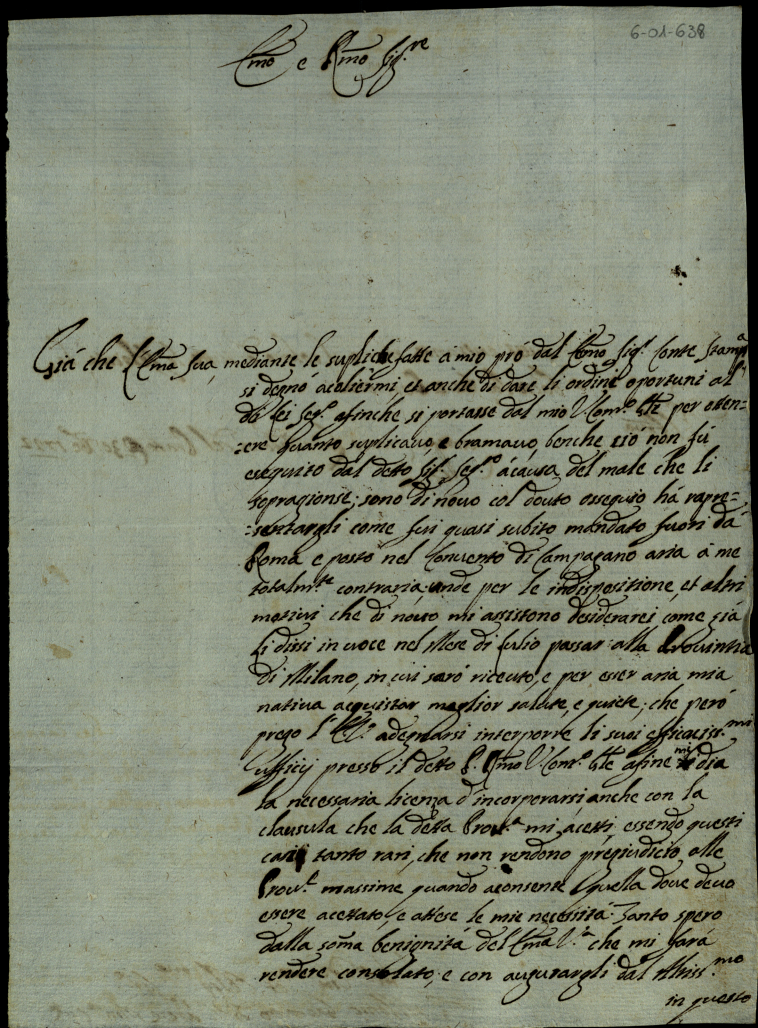 6-01-638
Emo e Rmo Sig.re
Già che l'Ema Sua, mediante le supliche fatte à mio prò dal Emo Sig.r Conte Stampa
si degnò acoliermi et anche di dare li ordini oportuni al
di Lei Seg.o afinche si portasse dal mio V. Com.o Gle per otten=
=ere quanto suplicavo, e bramavo, benche ciò non fù
eseguito dal detto Sig.r Seg.o à causa del male che li
sopragionse; sono di novo col douto ossequio hà rapre=
=sentargli come fui quasi subito mandato fuori da
Roma e posto nel Convento di Campagano aria à me
totalm.te contraria; unde per le indispositione, et altri
motivi che di novo mi assistono desiderarei come già
li dissi in voce nel Mese di Julio passar alla Provintia
di Milano, in cui sarò riceuto, e per esser aria mia
nativa acquistar maglior salute, e quiete; che però
prego l' adegnarsi interporre li suoi efficaciss.mi
ufficij presso il detto P. Rmo V. Com.o Gle afine mi dia
la necessaria licenza d'incorporarsi anche con la
clausula che la detta Prov.a mi acetti, essendo questi
casi tanto rari, che non rendono pregiudicio alle
Prov.e massime quando aconsente quella dove devo
essere acettato, e attese le mie necessità. Tanto spero
dalla soma benignità del Ema V.a che mi farà
rendere consolato; e con augurargli dal Altiss.mo
in questo